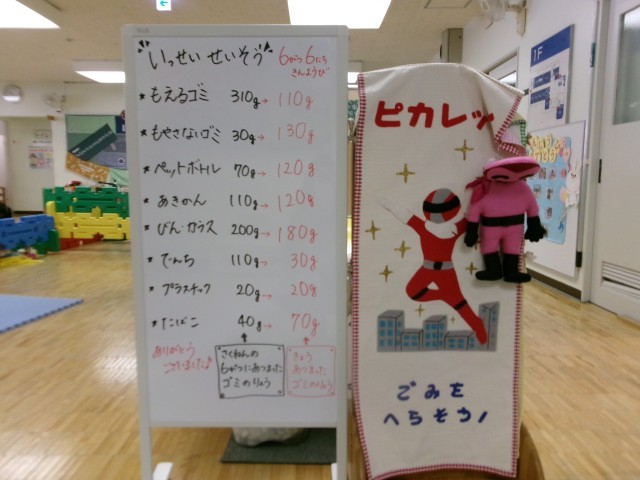 いっせい せいそう
6がつ6にち
きんようび
もえるゴミ 310g→110g
もやさないゴミ 30g→130g
ペットボトル 70g→120g
あきかん 110g→120g
びん・ガラス 200g→180g
でんち 110g→30g
プラスチック 20g→20g
たばこ 40g→70g
ありがとう
ございました♪
さくねんの
6がつにあつまった
ゴミのりょう
きょう
あつまった
ゴミのりょう
ピカレッ
ごみを
へらそう!
1F